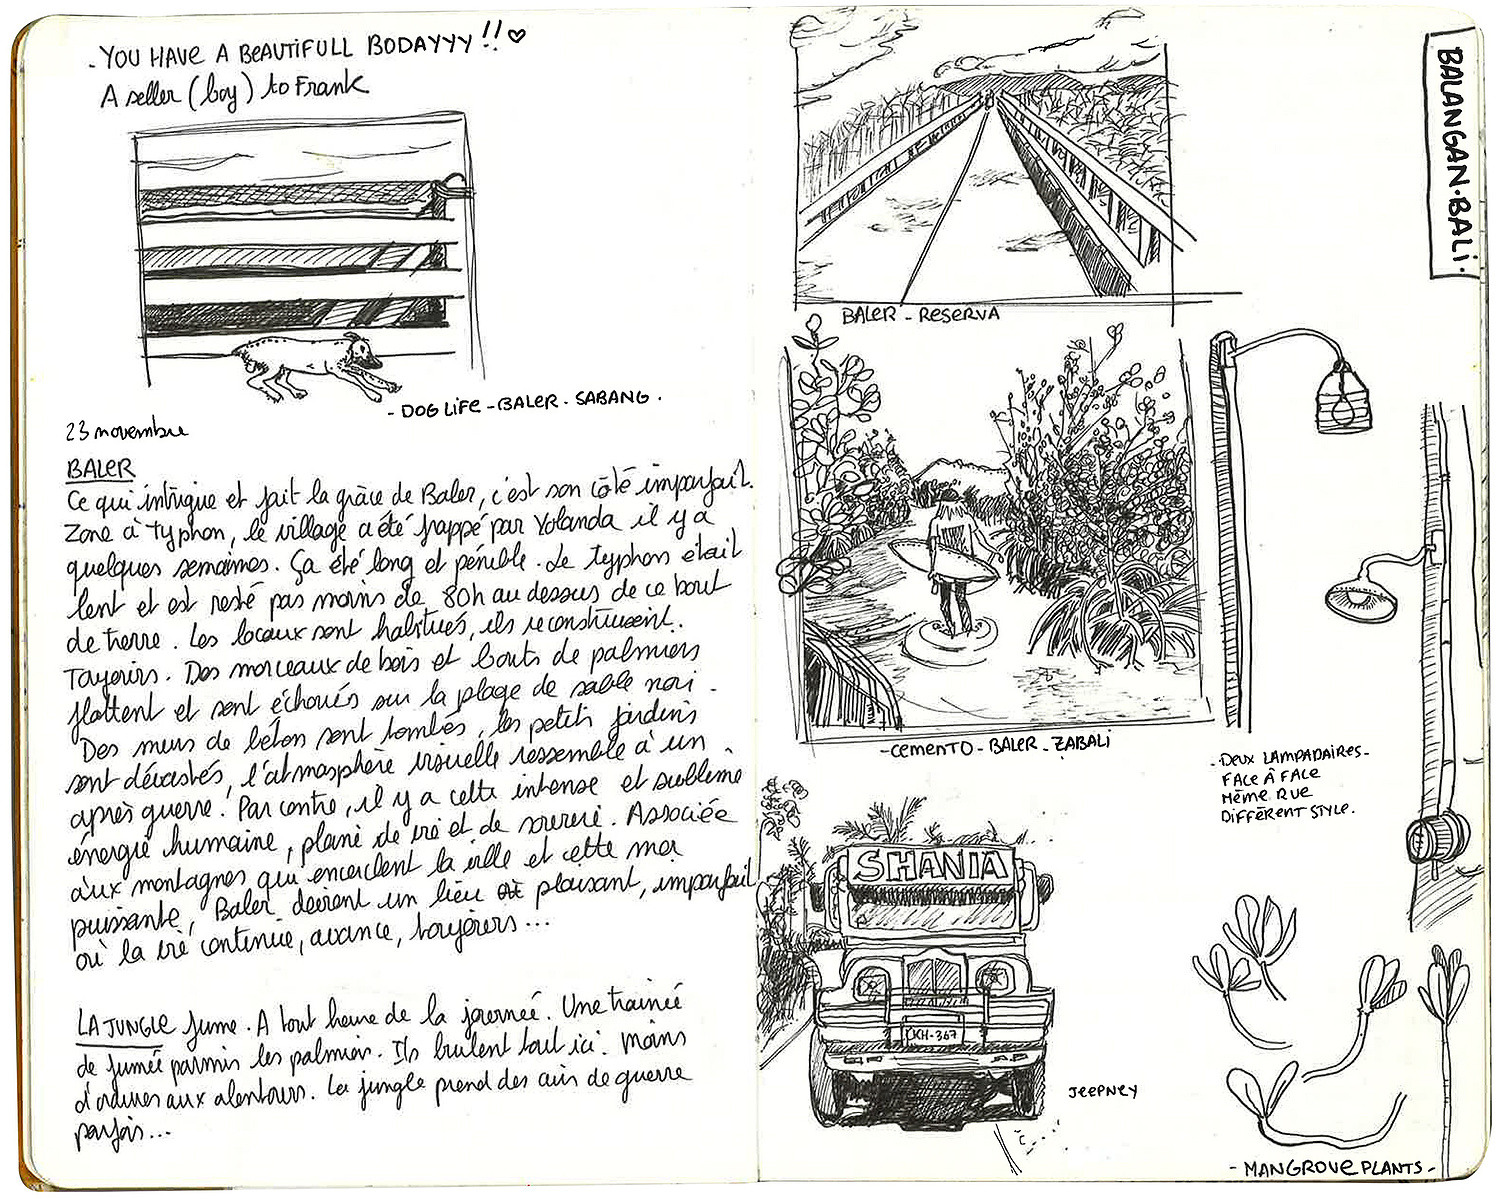 - YOU HAVE A BEAUTIFULL BODAYYY !! ♡
A seller (boy) to Frank
- DOG LIFE - BALER - SABANG .
23 novembre
BALER
Ce qui intrigue et fait la grâce de Baler, c'est son côté imparfait.
Zone à Typhon, le village a été frappé par Yolanda il y a
quelques semaines. Ça été long et pénible. Le typhon était
lent et est resté pas moins de 80h au dessus de ce bout
de terre. Les locaux sont habitués, ils reconstruisent.
Toujours. Des morceaux de bois et bouts de palmiers
flottent et sont échoués sur la plage de sable noir.
Des murs de béton sont tombés, les petits jardins
sont dévastés, l'atmosphère visuelle ressemble à un
après guerre. Par contre, il y a cette intense et sublime
énergie humaine, pleine de vie et de sourire. Associée
aux montagnes qui encerclent la ville et cette mer
puissante, Baler devient un lieu plaisant, imparfait
où la vie continue, avance, toujours...
LA JUNGLE fume. A tout heure de la journée. Une trainée
de fumée parmis les palmiers. Ils brulent tout ici. moins
d'ordures aux alentours. La jungle prend des airs de guerre
parfois...
BALER - RESERVA
- CEMENTO - BALER - ZABALI
SHANIA
CKH-367
JEEPNEY
BALANGAN · BALI ·
- DEUX LAMPADAIRES -
FACE À FACE
MÊME RUE
DIFFÉRENT STYLE.
- MANGROVE PLANTS -